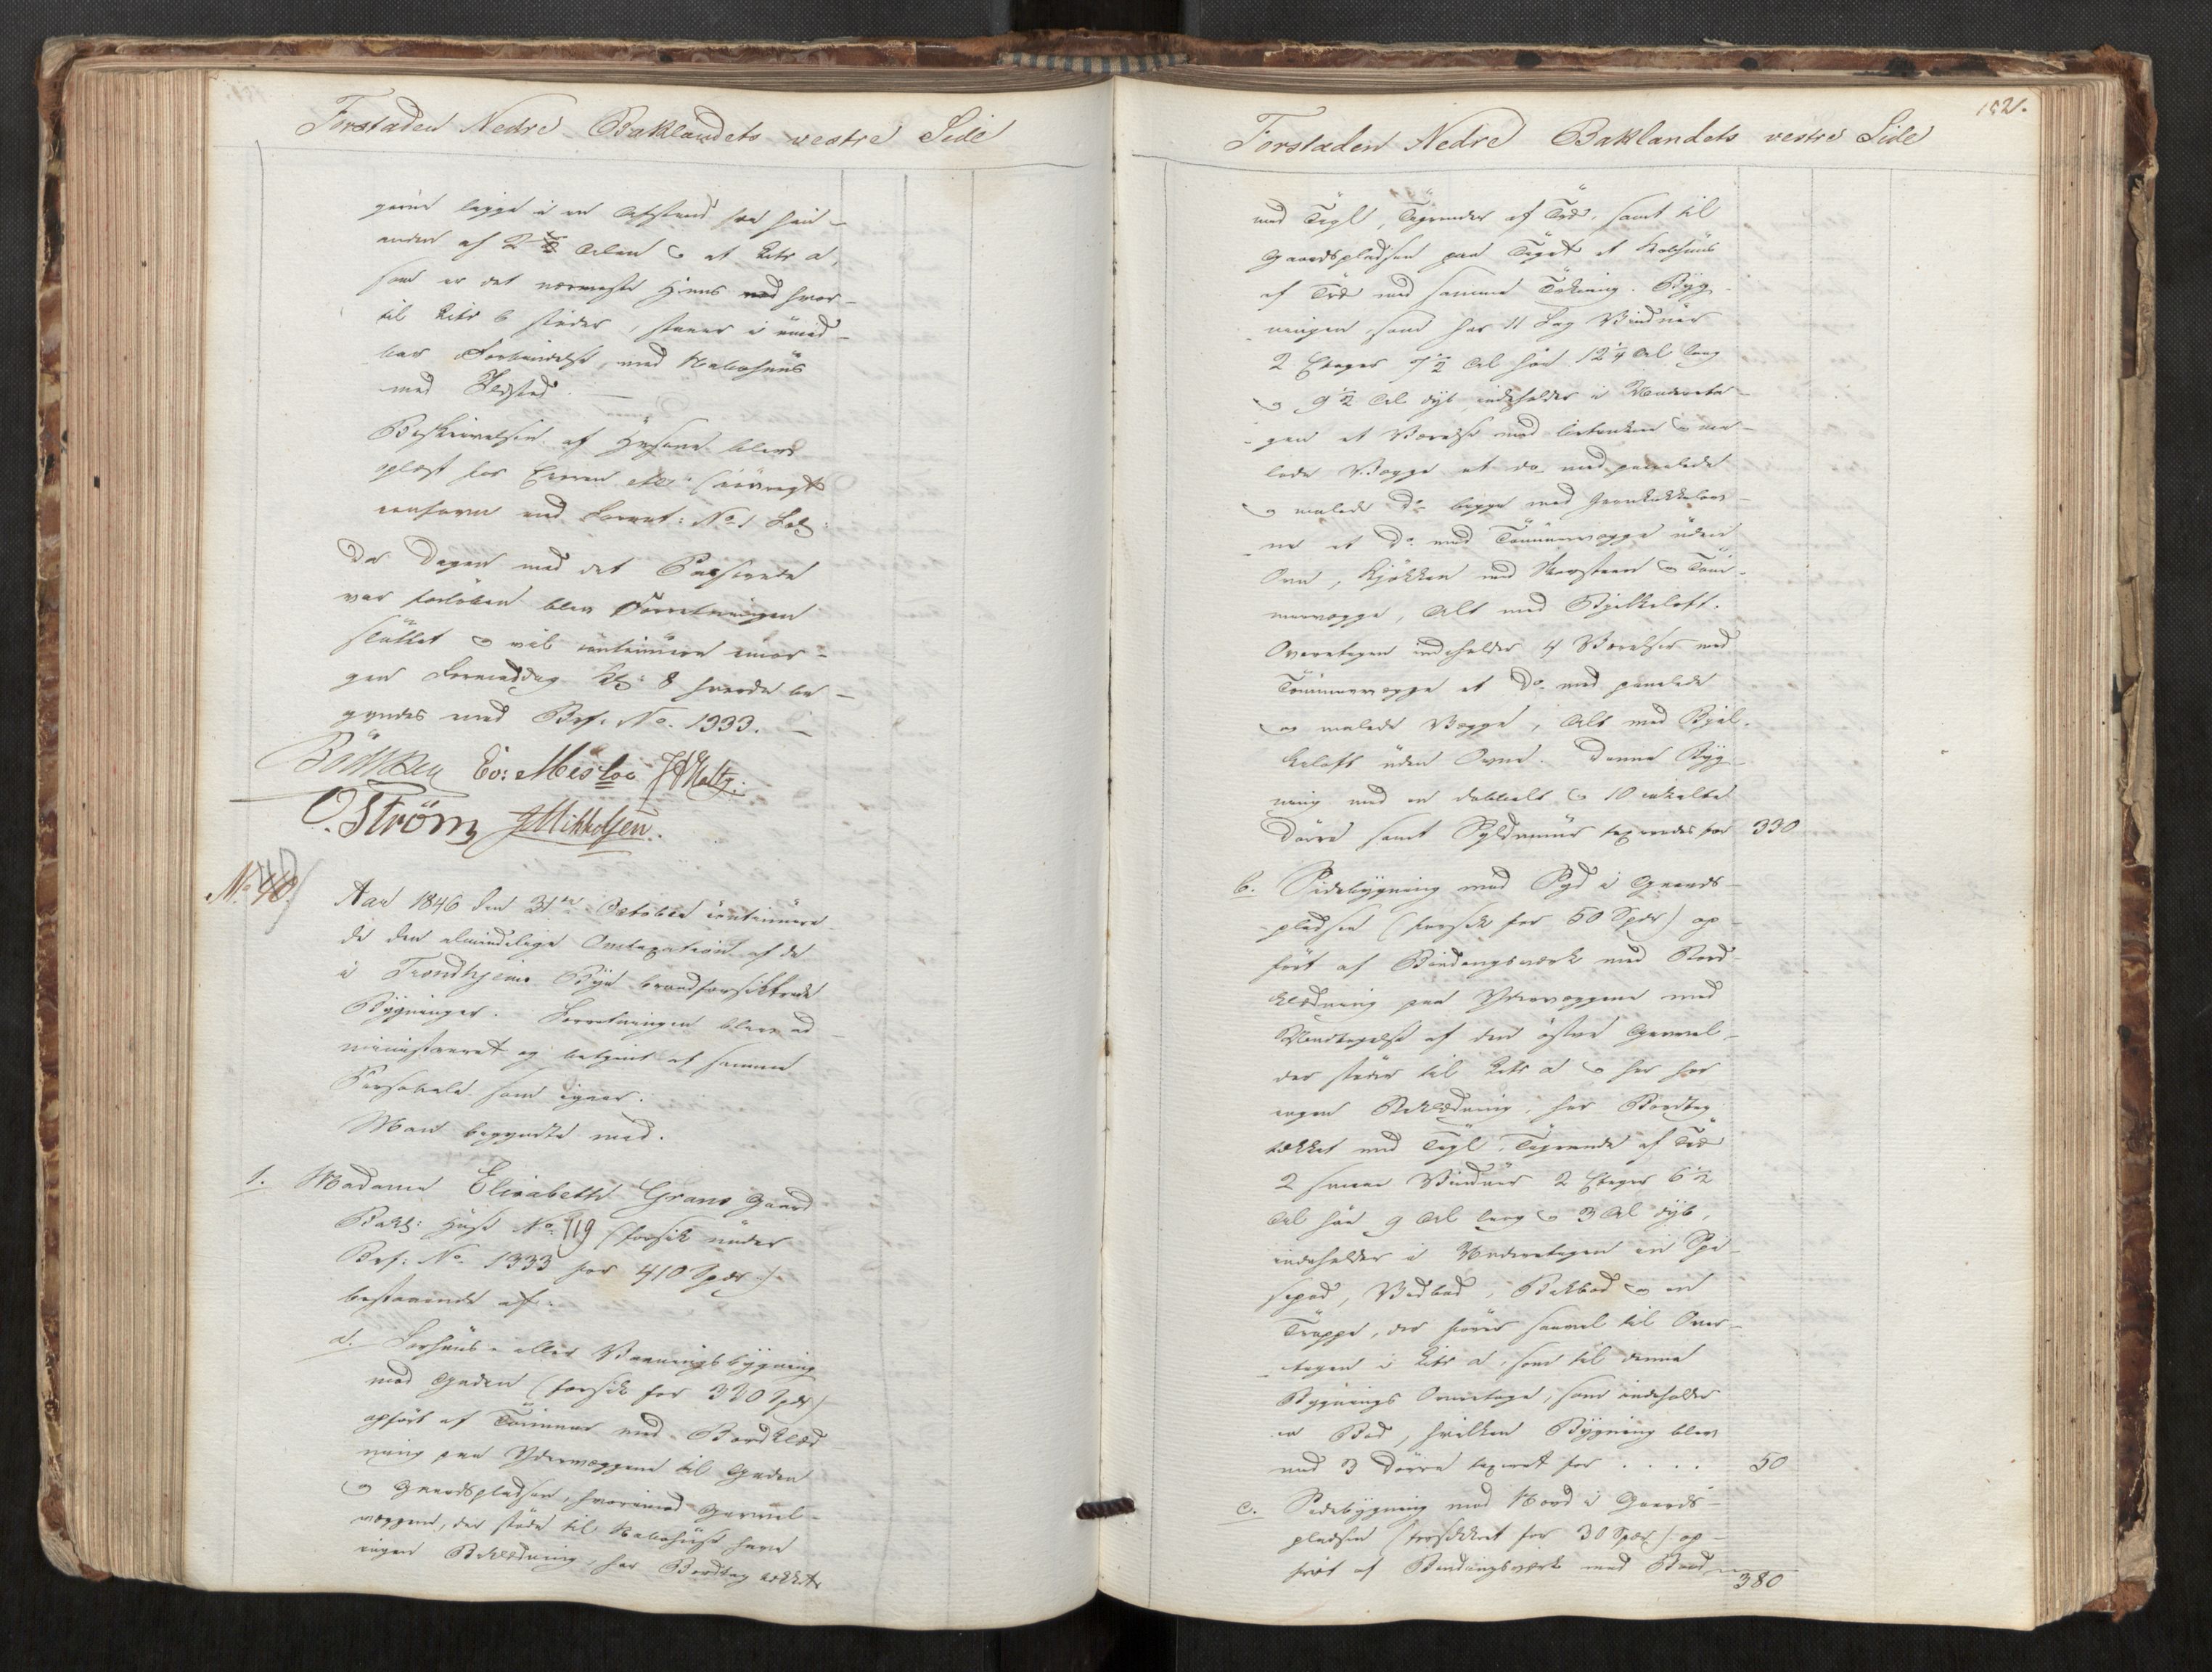 Forstaden Nedre Baklandets vestre Side
gerne ligge i en Afstand fra hin-
anden af 2 Alen & at Litr a,
som er det nærmeste Huus hvor-
til Litr b støder, staaer i umid-
bar Forbindelse med Nabohuus
med Ildsted. —
Beskrivelsen af Husene blev
oplæst for Eieren
conform med Forret: No 1
Da Dagen med det Passerede
var forløben blev Forretningen
sluttet & vil continuere imor-
gen Formiddag Kl: 8 hvorda be-
gyndes med Brf. No. 1333. —
Ströms Mikkelsen.
No. 40.
Aar 1846 den 31te October continuere-
de den almindelige Omtaxation af de
i Trondhjems Bye brandforsikkrede
Bygninger. Forretningen blev ad-
ministreret og betjent af samme
Personale som igaar.
Man begyndte med.
1. Madame Elisabeth Grams Gaard
Bakl: Huse No. 119 (forsik under
Brf. No. 1333 for 410 Spdr)
bestaaende af.
a. Forhuus- eller Vaaningsbygning
mod Gaden (forsik for 320 Spdr)
opført af Tømmer med Bordklæd-
ning paa Ydervæggene til Gaden
& Gaardspladsen, hvorimod Gavel-
væggene, der støde til Nabohuse have
ingen Beklædning, har Bordtag tækket
152.
Forstaden Nedre Baklandets vestre Side
med Tegl, Tagrender af Træ, samt til
Gaardspladsen paa Taget et
af Træ med samme Tækning. Byg-
ningen, som har 11 Fag Vinduer
2 Etager 7½ Al høi 12¼ Al lang
& 9½ Al dyb, indeholder i Undereta-
gen et Værelse med & ma-
lede Vægge et do med panelede
& malede Do begge med
ne et Do med Tømmervægge uden
Ovn, Kjøkken med Skorsteen & Tøm-
mervægge, Alt med Bjelkeloft.
Overetagen indeholder 4 Værelser med
Tømmervægge et Do med panelede
& malede Vægge, Alt med Bjel-
keloft uden Ovne. Denne Byg-
ning med en dobbelt & 10 enkelte
Dørre samt Syldmuur taxeredes for 330
b. Sidebygning mod Syd i Gaards-
pladsen (forsik for 50 Spdr) op-
ført af Bindingsværk med Bord-
klædning paa Ydervæggene med
Undtagelse af den østre Gavel,
der støder til Litr a & her har
ingen Beklædning, har Bordtag
tækket med Tegl, Tagrende af Træ
2 smaae Vinduer 2 Etager 6½
Al høi 9 Al lang & 3 Al dyb,
indeholder i Underetagen en Spi-
sebod, Vedbod, & en
Trappe, der fører saavel til Over-
etagen i Litr a, som til denne
Bygnings Overetage, som indeholder
en Bod, hvilken Bygning blev
med 3 Dørre taxeret for . . . . 50
c. Sidebygning mod Nord i Gaards-
pladsen (forsikkret for 30 Spdr) op-
ført af Bindingsværk med Bord-
380